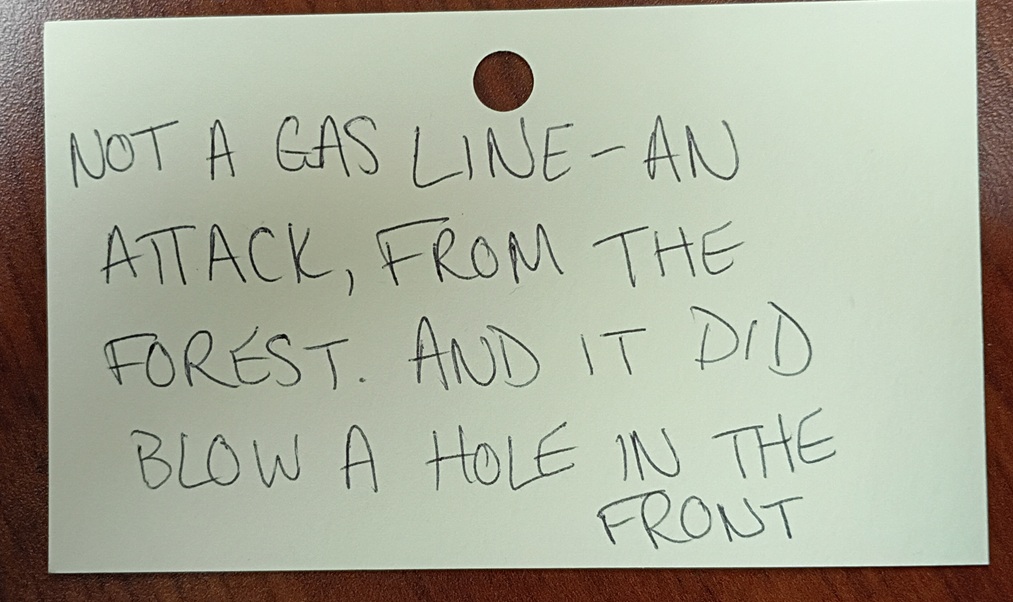 NOT A GAS LINE-AN
ATTACK, FROM THE
FOREST. AND IT DID
BLOW A HOLE IN THE
FRONT